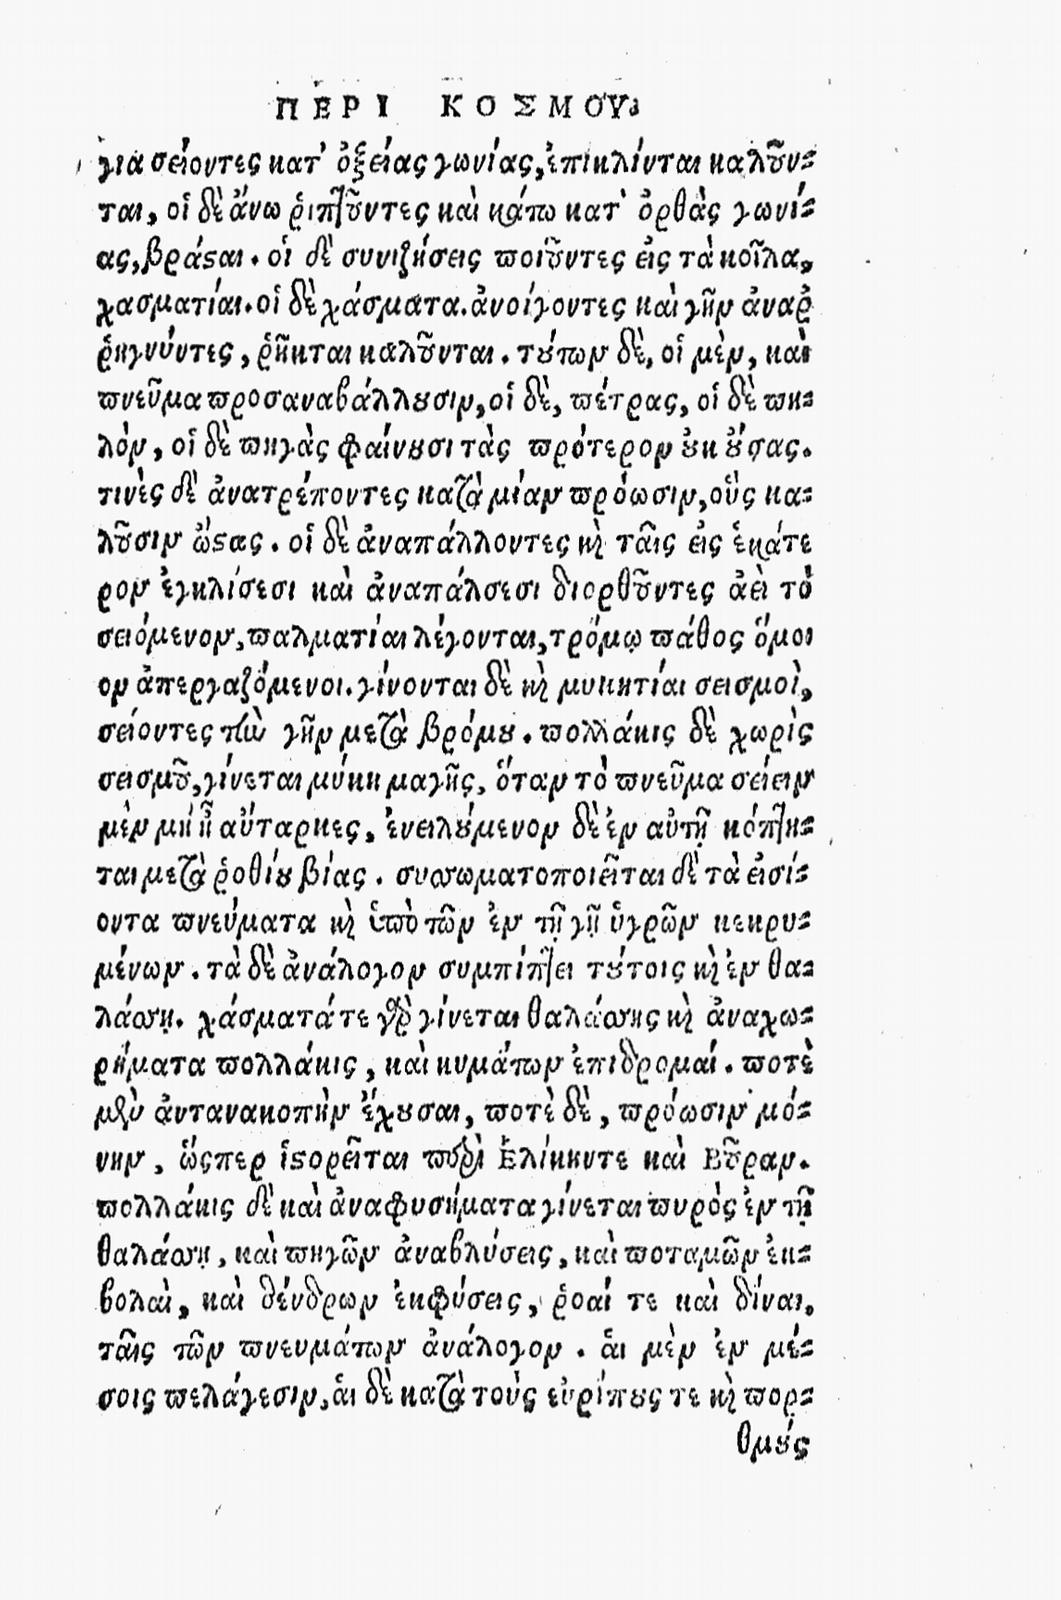 ΠΕΡΙ ΚΟΣΜΟΥ.
για σείοντες κατ' ὀξείας γωνίας, ἐπικλίνται καλοῦν-
ται, οἱ δὲ ἄνω ῥιπτοῦντες καὶ κάτω κατ' ὀρθὰς γωνί-
ας, βράσαι. οἱ δὲ συνιζήσεις ποιοῦντες εἰς τὰ κοῖλα,
χασματίαι. οἱ δὲ χάσματα. ἀνοίγοντες καὶ γῆν ἀναρ
ῥηγνύντες, ῥῆκται καλοῦνται. τούτων δὲ, οἱ μὲν, καὶ
πνεῦμα προσαναβάλλουσιν, οἱ δὲ, πέτρας, οἱ δὲ πη-
λὸν, οἱ δὲ πηγὰς φαίνουσι τὰς πρότερον οὐκ οὔσας.
τινὲς δὲ ἀνατρέποντες κατὰ μίαν πρόωσιν, οὓς κα-
λοῦσιν ὤστας. οἱ δὲ ἀναπάλλοντες καὶ ταῖς εἰς ἑκάτε
ρον ἐγκλίσεσι καὶ ἀναπάλσεσι διορθοῦντες ἀεὶ τὸ
σειόμενον, παλματίαι λέγονται, τρόμῳ πάθος ὅμοι
ον ἀπεργαζόμενοι. γίνονται δὲ καὶ μυκητίαι σεισμοὶ,
σείοντες τὴν γῆν μετὰ βρόμου. πολλάκις δὲ χωρὶς
σεισμοῦ, γίνεται μύκημα γῆς, ὅταν τὸ πνεῦμα σείειν
μὲν μὴ ᾖ αὔταρκες, ἐνειλούμενον δὲ ἐν αὐτῇ κόπτη-
ται μετὰ ῥοθίου βίας. συσσωματοποιεῖται δὲ τὰ εἰσί-
οντα πνεύματα καὶ ὑπὸ τῶν ἐν τῇ γῇ ὑγρῶν κεκρυ-
μένων. τὰ δὲ ἀνάλογον συμπίπτει τούτοις καὶ ἐν θα-
λάσσῃ. χάσματά τε γὰρ γίνεται θαλάσσης καὶ ἀναχω-
ρήματα πολλάκις, καὶ κυμάτων ἐπιδρομαί. ποτὲ
μὲν ἀντανακοπὴν ἔχουσαι, ποτὲ δὲ, πρόωσιν μό-
νην, ὥσπερ ἱστορεῖται περὶ Ἑλίκηντε καὶ Βοῦραν.
πολλάκις δὲ καὶ ἀναφυσήματα γίνεται πυρὸς ἐν τῇ
θαλάσσῃ, καὶ πηγῶν ἀναβλύσεις, καὶ ποταμῶν ἐκ-
βολαὶ, καὶ δένδρων ἐκφύσεις, ῥοαί τε καὶ δίναι,
ταῖς τῶν πνευμάτων ἀνάλογον. αἱ μὲν ἐν μέ-
σοις πελάγεσιν, αἱ δὲ κατὰ τοὺς εὐρίπους τε καὶ πορ-
θμούς